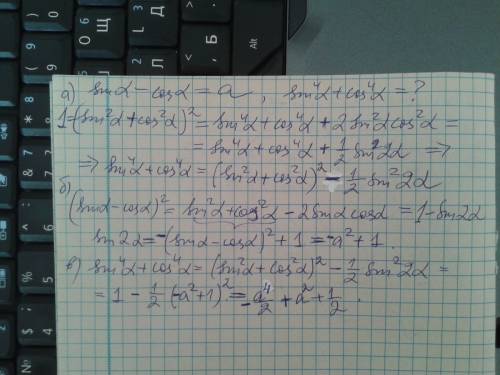 а) sinα − cosα = a , sin⁴α + cos⁴α = ?
1 = (sin²α + cos²α)² = sin⁴α + cos⁴α + 2sin²α cos²α =
= sin⁴α + cos⁴α + ½ sin²2α ⇒
⇒ sin⁴α + cos⁴α = (sin²α + cos²α)² − ½ sin²2α
б)
(sinα − cosα)² = sin²α + cos²α − 2sinα cosα = 1 − sin2α
sin2α = −(sinα − cosα)² + 1 = −a² + 1 .
в) sin⁴α + cos⁴α = (sin²α + cos²α)² − ½ sin²2α =
= 1 − ½ (−a² + 1)² = −a⁴/2 + a² + ½ .
Alt